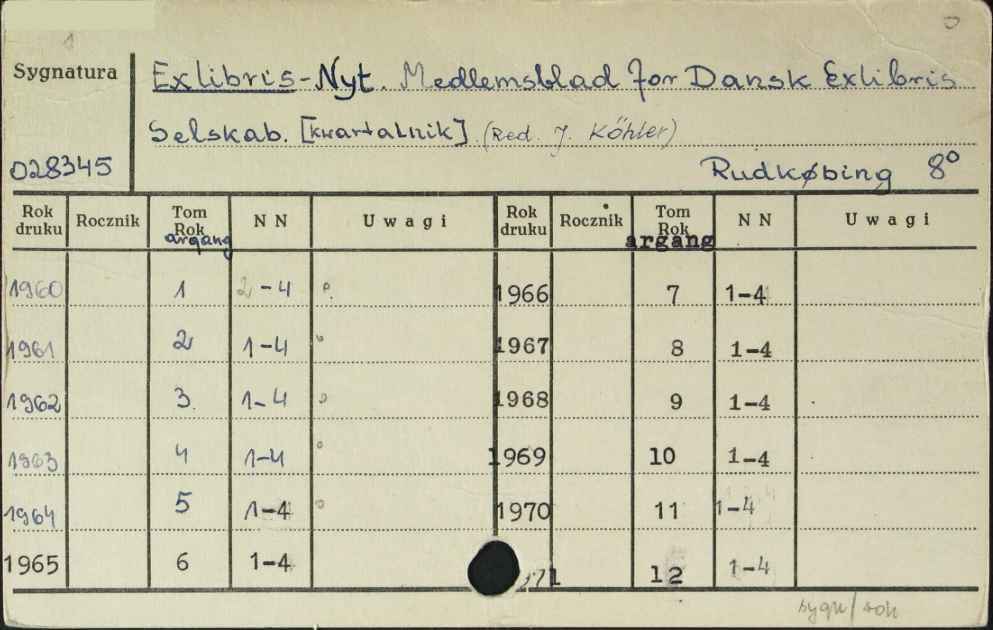 Sygnatura
Exlibris-Nyt. Medlemsblad for Dansk Exlibris
Selskab. [kwartalnik] (Red. J. Köhler)
028345
Rudkøbing 8°
Rok druku Rocznik Tom Rok argang N N Uwagi Rok druku Rocznik Tom Rok argang N N Uwagi
1960 1 2-4 1966 7 1-4
1961 2 1-4 1967 8 1-4
1962 3 1-4 1968 9 1-4
1963 4 1-4 1969 10 1-4
1964 5 1-4 1970 11 1-4
1965 6 1-4 71 12 1-4
sygn/rok